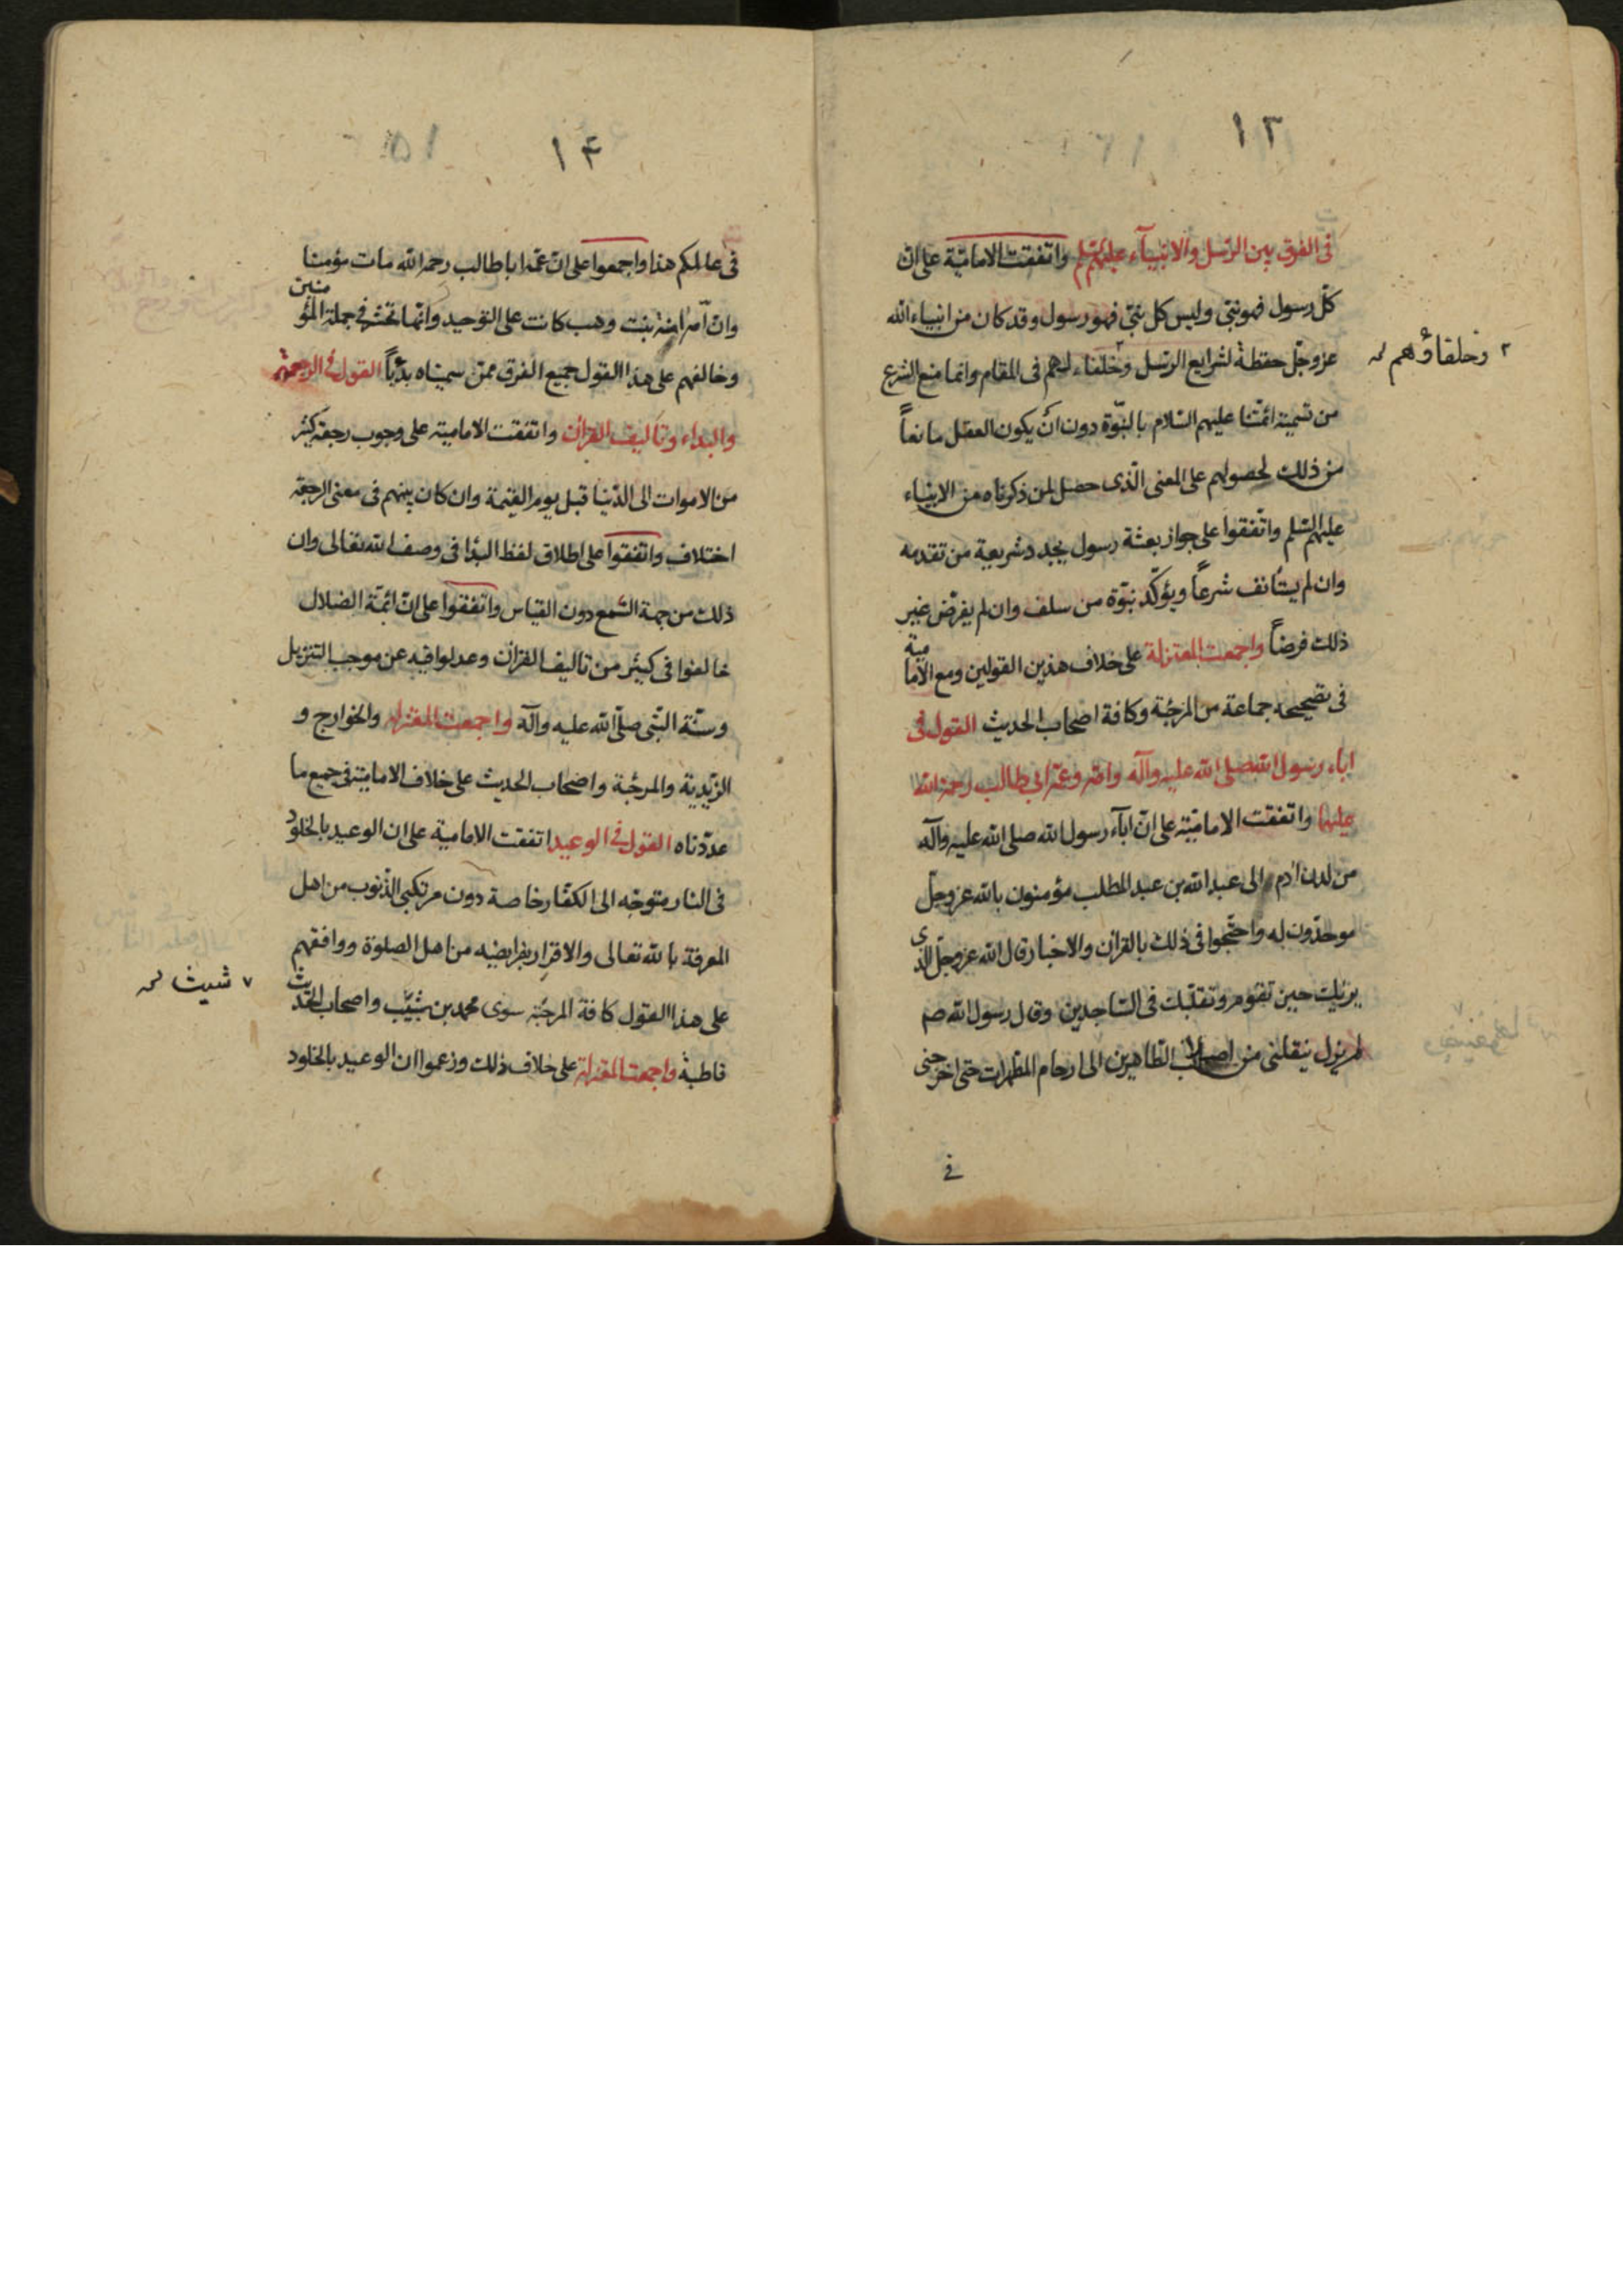 ١٣
فى الفرق بين الرسل والانبيآء عليهم السلم واتفقت الامامية على ان
كل رسول فهو نبى وليس كل نبى فهو رسول وقد كان من انبياء الله
عز وجل حفظة لشرايع الرسل وخلفاء لهم فى المقام وانما منع الشرع
٢ وخلفاؤهم
من تسمية ائمتنا عليهم السلام بالنبوة دون ان يكون العقل مانعاً
من ذلك لحصولهم على المعنى الذى حصل لمن ذكرناه من الانبياء
عليهم السلم واتفقوا على جواز بعثة رسول يجدد شريعة من تقدمه
وان لم يستأنف شرعاً ويؤكد نبوة من سلف وان لم يفرض غير
ذلك فرضاً واجمعت المعتزلة على خلاف هذين القولين ومع الامامية
فى تصحيحه جماعة من المرجئة وكافة اصحاب الحديث القول فى
اباء رسول الله صلى الله عليه وآله وامه وعمه ابى طالب رحمة الله
عليهما واتفقت الامامية على ان ابآء رسول الله صلى الله عليه وآله
من لدن ادم الى عبد الله بن عبد المطلب مؤمنون بالله عز وجل
موحدون له واحتجوا فى ذلك بالقران والاخبار قال الله عز وجل الذى
يريك حين تقوم وتقلبك فى الساجدين وقال رسول الله صم
لم يزل ينقلنى من اصلاب الطاهرين الى ارحام المطهرات حتى اخرجنى
فى
١۴
فى عالمكم هذا واجمعوا على ان عمه ابا طالب رحمه الله مات مؤمنا
وان آمنة بنت وهب كانت على التوحيد وانها تحشر فى جملة المؤمنين
وخالفهم على هذا القول جميع الفرق ممن سميناه بدياً القول فى الرجعة
والبداء وتاليف القران واتفقت الامامية على وجوب رجعة كثير
من الاموات الى الدنيا قبل يوم القيمة وان كان بينهم فى معنى الرجعة
اختلاف واتفقوا على اطلاق لفظ البدا فى وصف الله تعالى وان
ذلك من جهة السمع دون القياس واتفقوا على ان ائمة الضلال
خالفوا فى كثير من تاليف القران وعدلوا فيه عن موجب التنزيل
وسنة النبى صلى الله عليه وآله واجمعت المعتزلة والخوارج و
الزيدية والمرجئة واصحاب الحديث على خلاف الامامية فى جميع ما
عددناه القول فى الوعيد اتفقت الامامية على ان الوعيد بالخلود
فى النار متوجه الى الكفار خاصة دون مرتكبى الذنوب من اهل
المعرفة بالله تعالى والاقرار بفرايضه من اهل الصلوة ووافقهم
على هذا القول كافة المرجئة سوى محمد بن شبيب واصحاب الحديث
٧ شبيث
قاطبة واجمعت المعتزلة على خلاف ذلك وزعموا ان الوعيد بالخلود